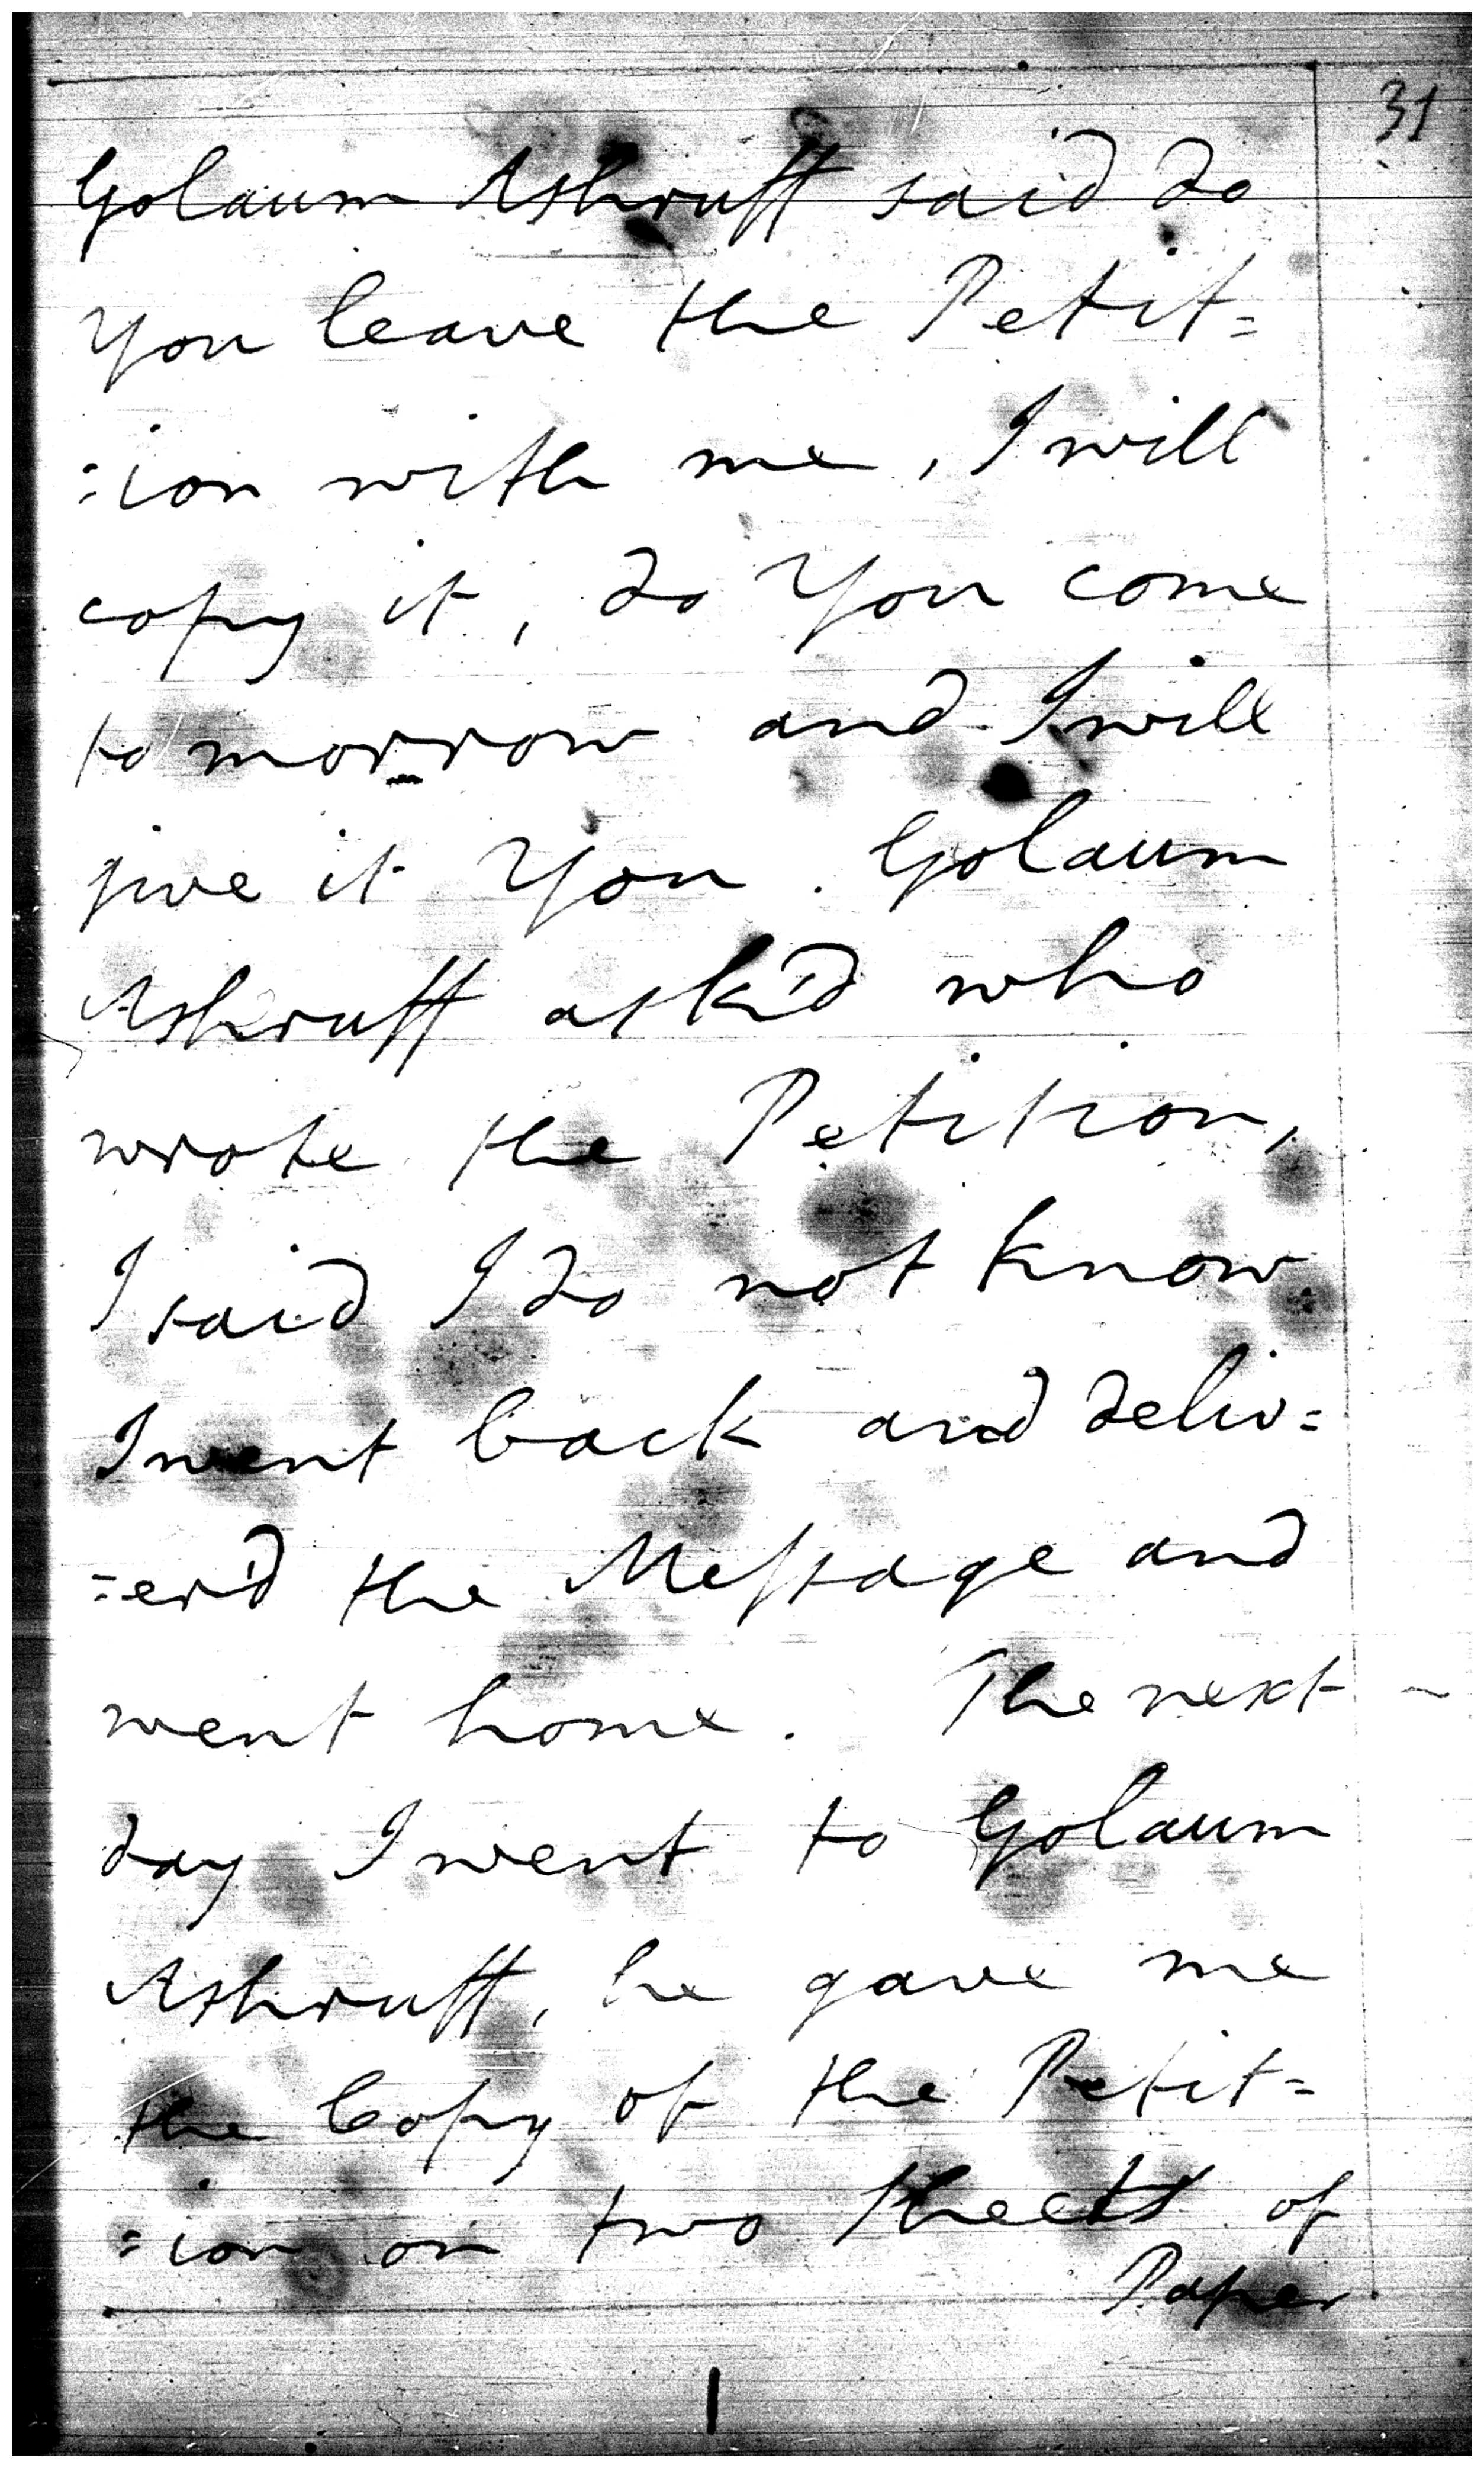 31
Golaum Ashruff said do
You leave the Petit=
=ion with me, I will
copy it, do You come
to morrow and I will
give it You. Golaum
Ashruff ask'd who
wrote the Petition,
I said I do not know
I went back and deliv=
=er'd the Message and
went home. The next
day I went to Golaum
Ashruff, he gave me
the Copy of the Petit=
=ion on two Sheets of
Paper